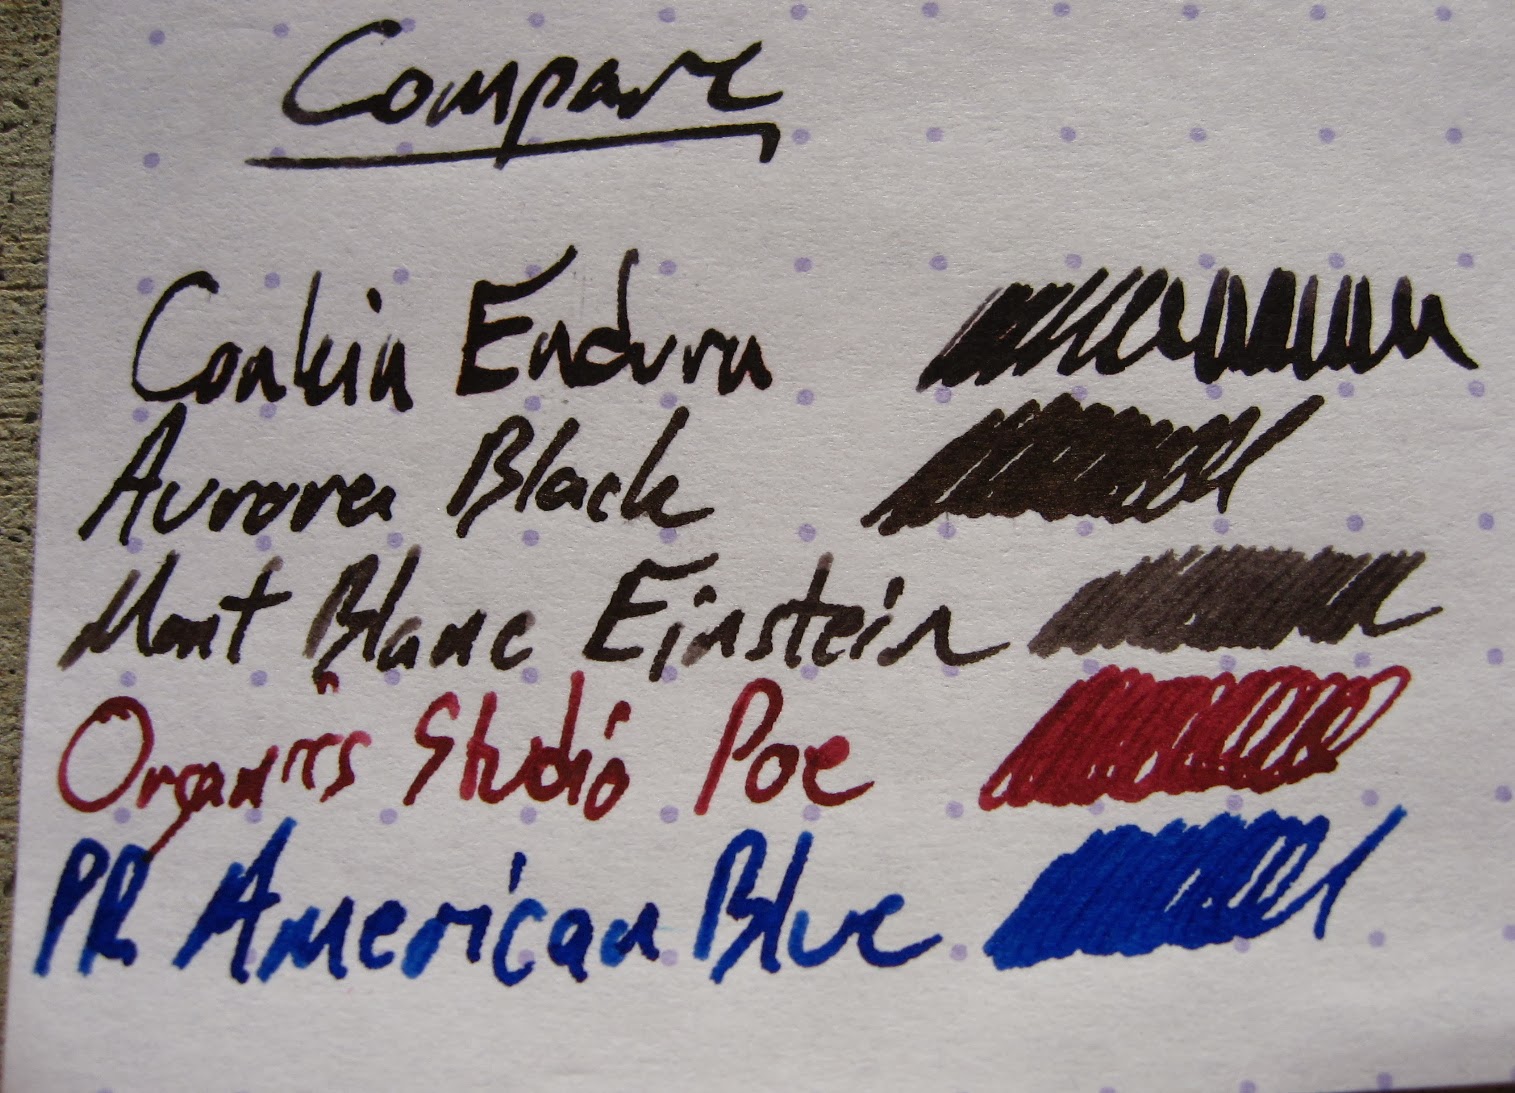 Compare
Conkin Endura
Aurora Black
Mont Blanc Einstein
Organics Studio Poe
PR American Blue